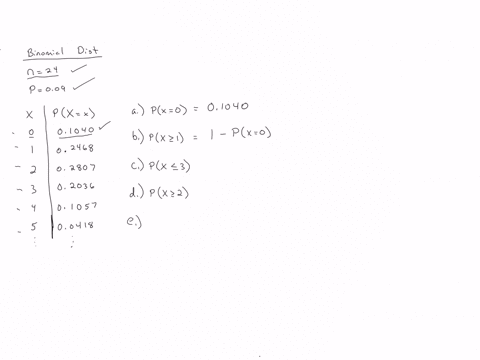 Binomial Dist
n = 24 ✓
P = 0.09 ✓
X P(X=x)
0 0.1040 ✓
1 0.2468
2 0.2807
3 0.2036
4 0.1057
5 0.0418
⋮ ⋮
a.) P(x=0) = 0.1040
b.) P(x≥1) = 1 - P(x=0)
c.) P(x≤3)
d.) P(x≥2)
e.)